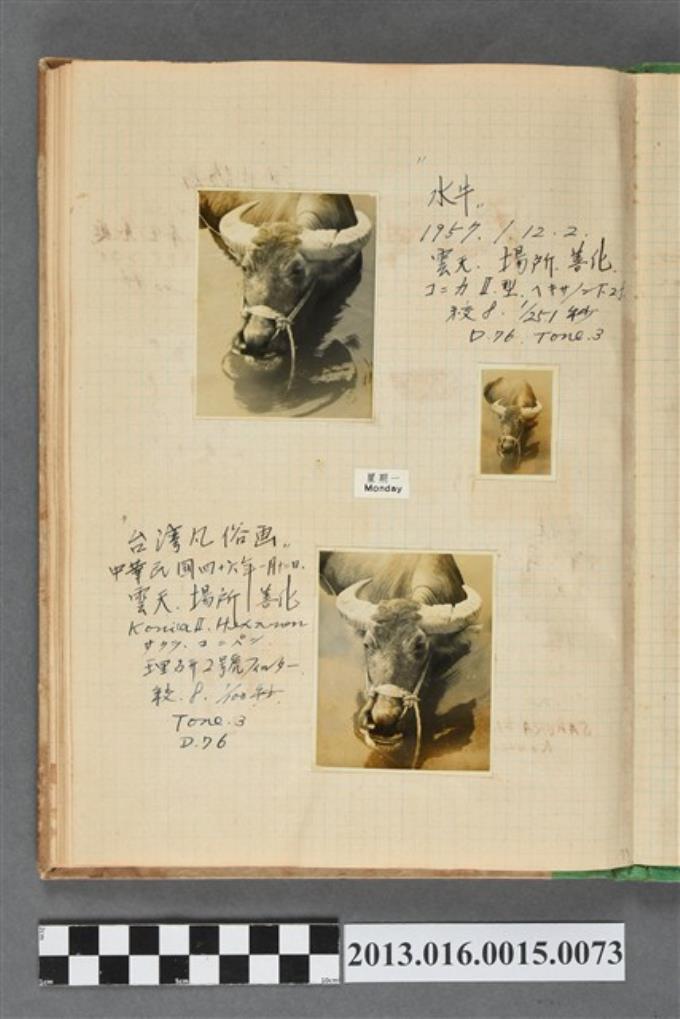 "水牛"
1957. 1. 12. 2.
雲天. 場所. 善化.
コニカ Ⅱ型. ヘキサノン
絞 8. 1/251 秒
D.76. Tone.3
星期一
Monday
"台湾風俗画"
中華民國四十六年一月十二日.
雲天. 場所 善化
Konica Ⅱ. Hexanon
サクラ. コニパン
2號フィルター.
絞. 8. 1/100 秒.
Tone.3
D.76
1cm 5cm 10cm
2013.016.0015.0073